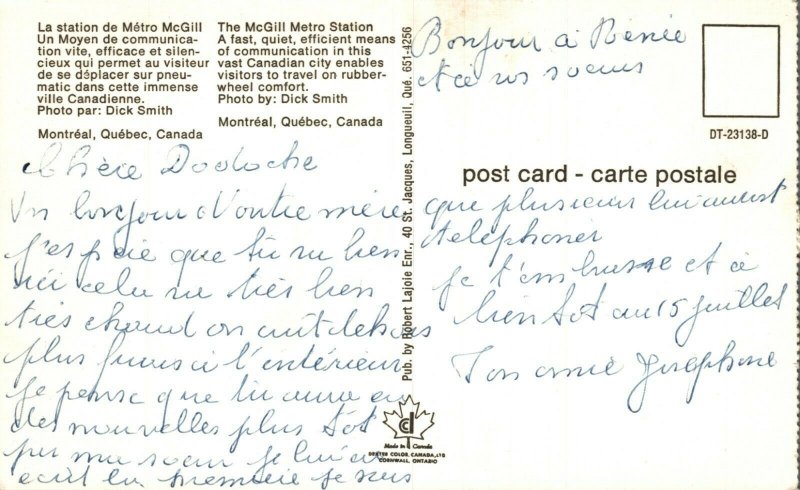 La station de Métro McGill
Un Moyen de communica-
tion vite, efficace et silen-
cieux qui permet au visiteur
de se déplacer sur pneu-
matic dans cette immense
ville Canadienne.
Photo par: Dick Smith
Montréal, Québec, Canada
The McGill Metro Station
A fast, quiet, efficient means
of communication in this
vast Canadian city enables
visitors to travel on rubber-
wheel comfort.
Photo by: Dick Smith
Montréal, Québec, Canada
Chère Dodoche
Un bonjour d'outre mère
j'espeie que tu va bien
ici cela va tiès bien
tiès chaud on
plus à l'intérieur
je pense que tu aura eu
des nouvelles plus tot
par ma soeur je lui ai
ecrit la premieie je sais
Pub. by Robert Lajoie Enr., 40 St. Jacques, Longueuil, Qué. 651-4256
Made in Canada
DEXTER COLOR CANADA, LTD
CORNWALL, ONTARIO
Bonjour à Renée
et à vos soeurs
DT-23138-D
post card - carte postale
que plusieur lui auront
telephoner
je t'embrasse et à
bientot au 15 juillet
Ton amie Josephine